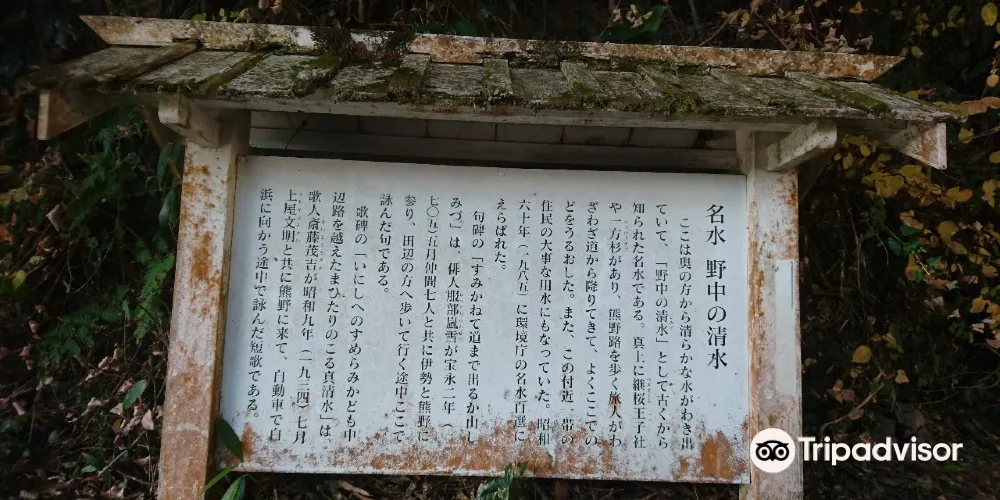 名水 野中の清水
ここは奥の方から清らかな水がわき出
ていて、「野中の清水」として古くから
知られた名水である。真上に継桜王子社
や一方杉があり、熊野路を歩く旅人がわ
ざわざ道から降りてきて、よくここでの
どをうるおした。また、この付近一帯の
住民の大事な用水にもなっていた。昭和
六十年(一九八五)に環境庁の名水百選に
えらばれた。
句碑の「すみかねて道まで出るか山し
みづ」は、俳人服部嵐雪が宝永二年(一
七〇五)五月仲間七人と共に伊勢と熊野に
参り、田辺の方へ歩いて行く途中ここで
詠んだ句である。
歌碑の「いにしへのすめらみかども中
辺路を越えたまひたりのこる真清水」は、
歌人斎藤茂吉が昭和九年(一九三四)七月
土屋文明と共に熊野に来て、自動車で白
浜に向かう途中で詠んだ短歌である。
Tripadvisor